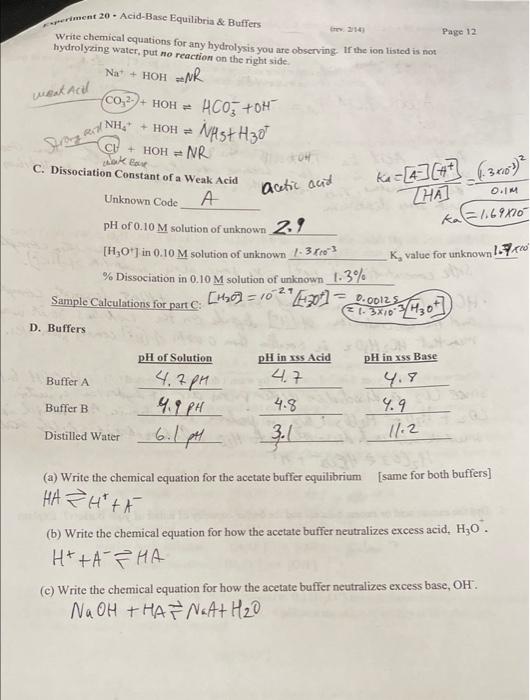 Experiment 20 • Acid-Base Equilibria & Buffers (rev. 2/14) Page 12
Write chemical equations for any hydrolysis you are observing. If the ion listed is not
hydrolyzing water, put no reaction on the right side.
Na⁺ + HOH ⇌ NR
weak Acid
CO₃²⁻ + HOH ⇌ HCO₃⁻ + OH⁻
NH₄⁺ + HOH ⇌ NH₃ + H₃O⁺
Strong acid
Cl⁻ + HOH ⇌ NR
weak Base
C. Dissociation Constant of a Weak Acid acetic acid
Ka = [A⁻][H⁺] / [HA] = (1.3x10⁻³)² / 0.1M
Unknown Code A
Ka = 1.69x10⁻
pH of 0.10 M solution of unknown 2.9
[H₃O⁺] in 0.10 M solution of unknown 1.3x10⁻³ Kₐ value for unknown 1.7x10
% Dissociation in 0.10 M solution of unknown 1.3%
Sample Calculations for part C: [H₃O⁺] = 10⁻²·⁹ [H₃O⁺] = 0.00125
= 1.3x10⁻³ [H₃O⁺]
D. Buffers
pH of Solution pH in xss Acid pH in xss Base
Buffer A 4.7 pH 4.7 4.8
Buffer B 4.9 pH 4.8 4.9
Distilled Water 6.1 pH 3.1 11.2
(a) Write the chemical equation for the acetate buffer equilibrium [same for both buffers]
HA ⇌ H⁺ + A⁻
(b) Write the chemical equation for how the acetate buffer neutralizes excess acid, H₃O⁺.
H⁺ + A⁻ ⇌ HA
(c) Write the chemical equation for how the acetate buffer neutralizes excess base, OH⁻.
NaOH + HA ⇌ NaA + H₂O